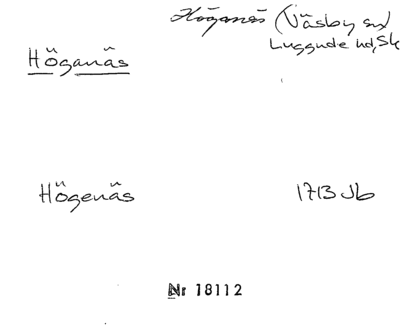 Höganäs (Väsby sn
Luggude hd, Sk
Höganäs
Högenäs 1713 Jb
Nr 18112